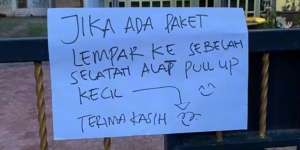 JIKA ADA PAKET
LEMPAR KE SEBELAH
SELATAH ALAP PULL UP
KECIL
TERIMA KASIH